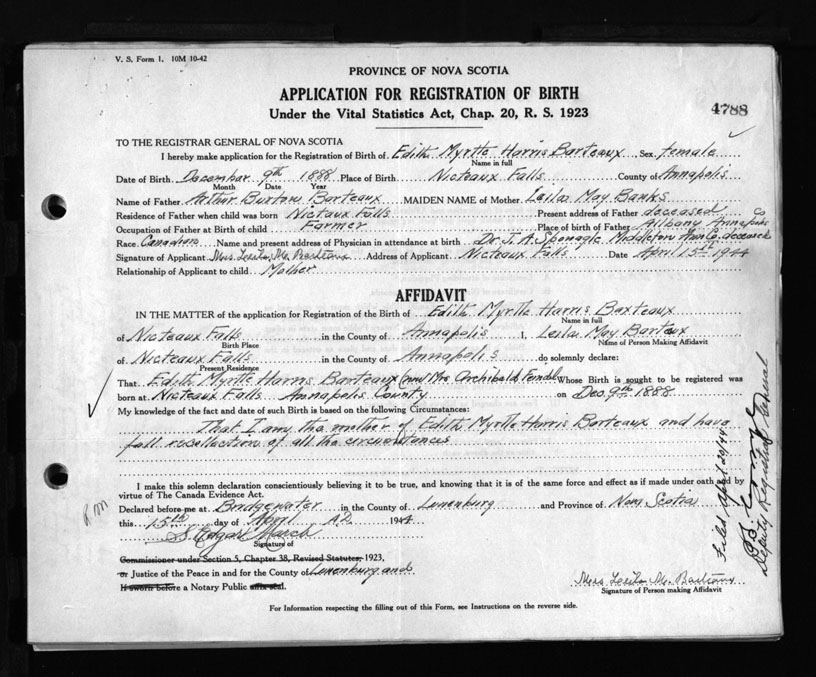 V. S. Form 1. 10M 10-42
PROVINCE OF NOVA SCOTIA
APPLICATION FOR REGISTRATION OF BIRTH
Under the Vital Statistics Act, Chap. 20, R. S. 1923
4788
TO THE REGISTRAR GENERAL OF NOVA SCOTIA
I hereby make application for the Registration of Birth of Edith Myrtle Harris Barteaux Sex female
Name in full
Date of Birth December 9th 1888 Place of Birth Nicteaux Falls County of Annapolis
Month Date Year
Name of Father Arthur Burton Barteaux MAIDEN NAME of Mother Leila May Banks
Residence of Father when child was born Nictaux Falls Present address of Father deceased
Occupation of Father at Birth of child Farmer Place of birth of Father Albany Annapolis Co
Race Canadian Name and present address of Physician in attendance at birth Dr. J. A. Sponagle Middleton Ann Co. deceased
Signature of Applicant Mrs. Leila M. Barteaux Address of Applicant Nicteaux Falls Date April 15th 1944
Relationship of Applicant to child Mother
AFFIDAVIT
IN THE MATTER of the application for Registration of the Birth of Edith Myrtle Harris Barteaux
Name in full
of Nicteaux Falls in the County of Annapolis I, Leila May Barteux
Birth Place Name of Person Making Affidavit
of Nicteaux Falls in the County of Annapolis do solemnly declare:
Present Residence
That Edith Myrtle Harris Barteaux (now Mrs Archibald Feindel Whose Birth is sought to be registered was
born at Nicteaux Falls Annapolis County on Dec. 9th 1888
My knowledge of the fact and date of such Birth is based on the following Circumstances:
That I am the mother of Edith Myrtle Harris Barteaux and have
full recollection of all the circumstances
I make this solemn declaration conscientiously believing it to be true, and knowing that it is of the same force and effect as if made under oath and by
virtue of The Canada Evidence Act.
Declared before me at Bridgewater in the County of Lunenburg and Province of Nova Scotia
this 15th day of April A.D. 1944
S. Edgar March
Signature of
Commissioner under Section 5, Chapter 38, Revised Statutes, 1923,
or Justice of the Peace in and for the County of Lunenburg and
If sworn before a Notary Public affix seal.
Mrs Leila M. Barteaux
Signature of Person making Affidavit
For Information respecting the filling out of this Form, see Instructions on the reverse side.
Filed April 20/44
Deputy Registrar General